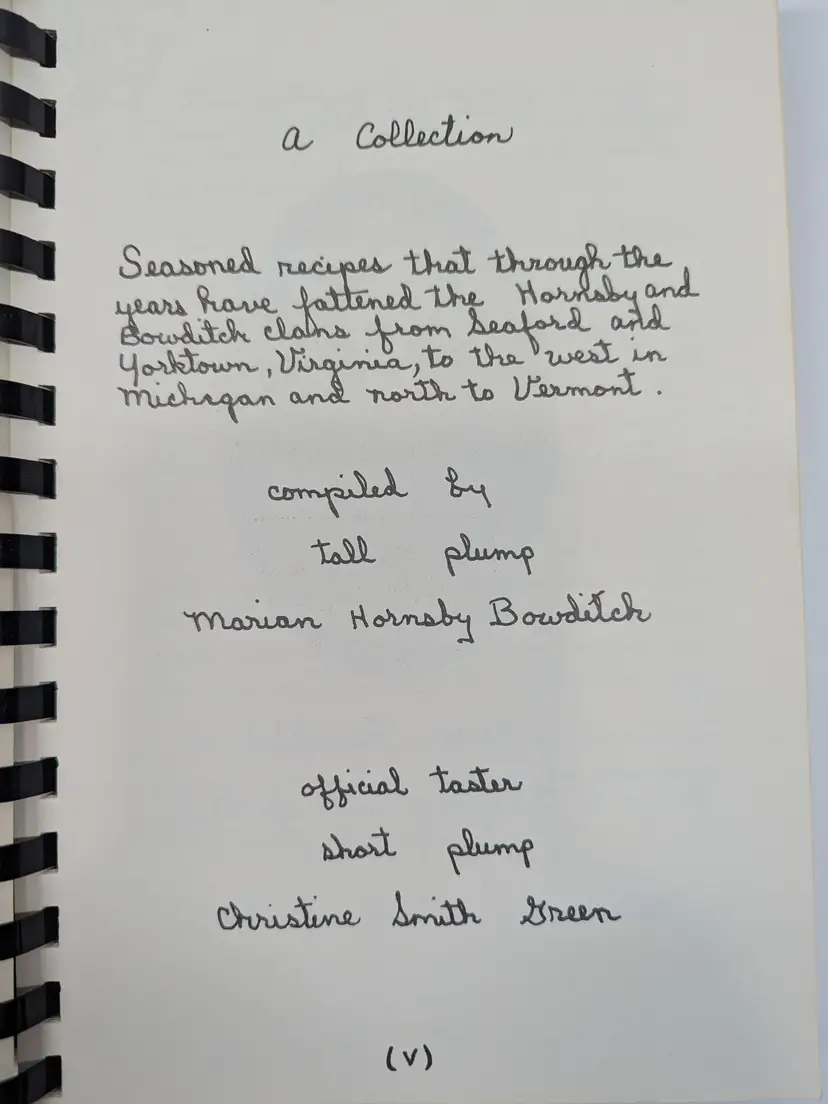 a Collection
Seasoned recipes that through the
years have fattened the Hornsby and
Bowditch clans from Seaford and
Yorktown, Virginia, to the west in
Michigan and north to Vermont.
compiled by
tall plump
Marian Hornsby Bowditch
official taster
short plump
Christine Smith Green
(V)